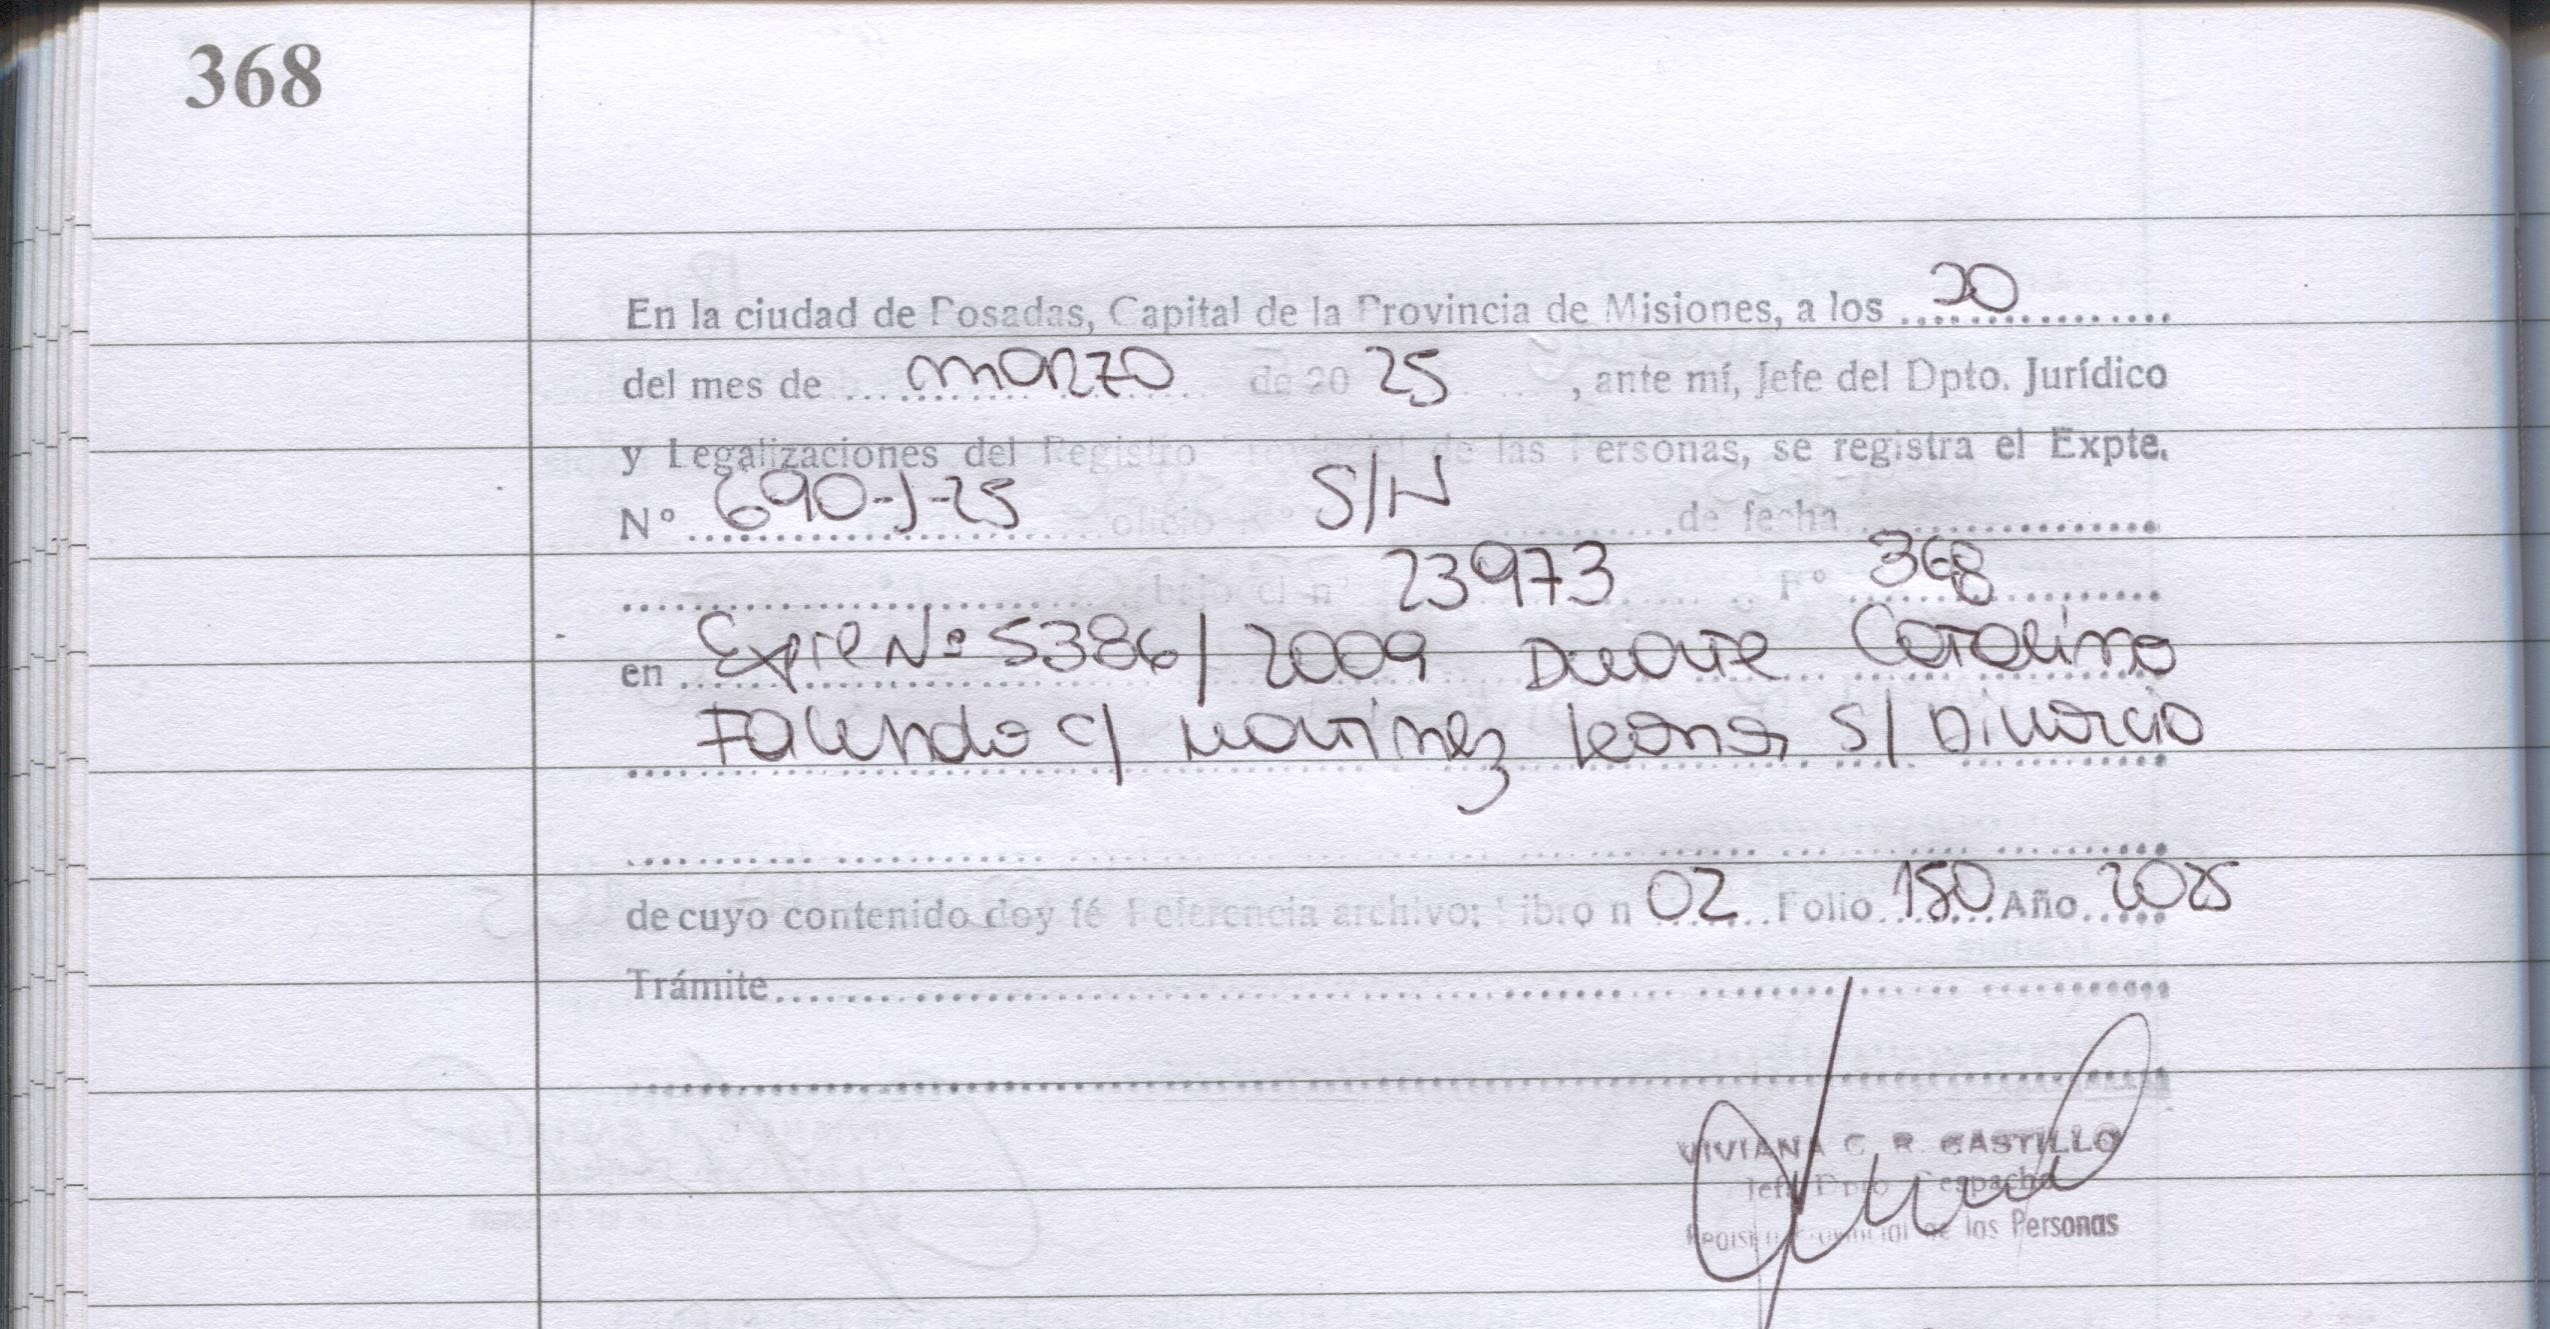 368
En la ciudad de Posadas, Capital de la Provincia de Misiones, a los 20
del mes de marzo de 20 25, ante mí, Jefe del Dpto. Jurídico
y Legalizaciones del Registro Provincial de las Personas, se registra el Expte.
Nº 690-J-25 oficio Nº S/N de fecha
bajo el nº 23973 Fº 368
en Expte Nº 5386/2009 Duarte Catalino
Facundo c/ Martinez Leonor S/ Divorcio
de cuyo contenido doy fé Referencia archivo: Libro n 02 Folio 180 Año 2025
Trámite
VIVIANA C. R. CASTILLO
Jefa Dpto Despacho
Registro Provincial de las Personas